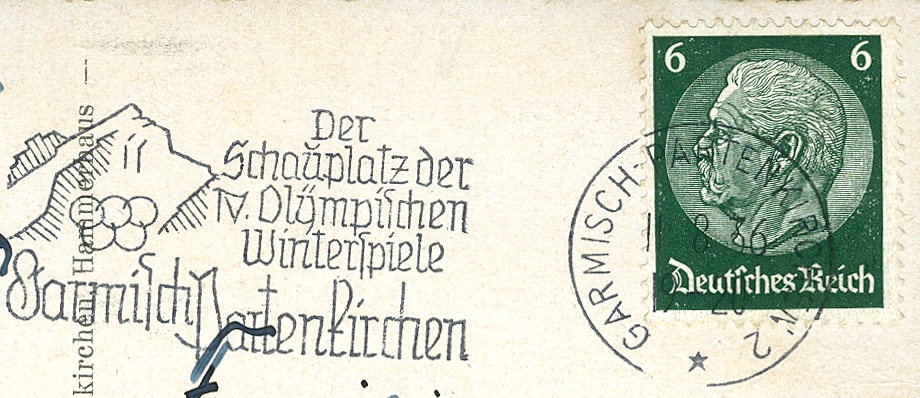 Der
Schauplatz der
IV. Olÿmpischen
Winterspiele
Garmisch Partenkirchen
kirchen, Hammerhaus —
6 6
Deutsches Reich
GARMISCH-PARTENKIRCHEN
11 8 36
19 20
2